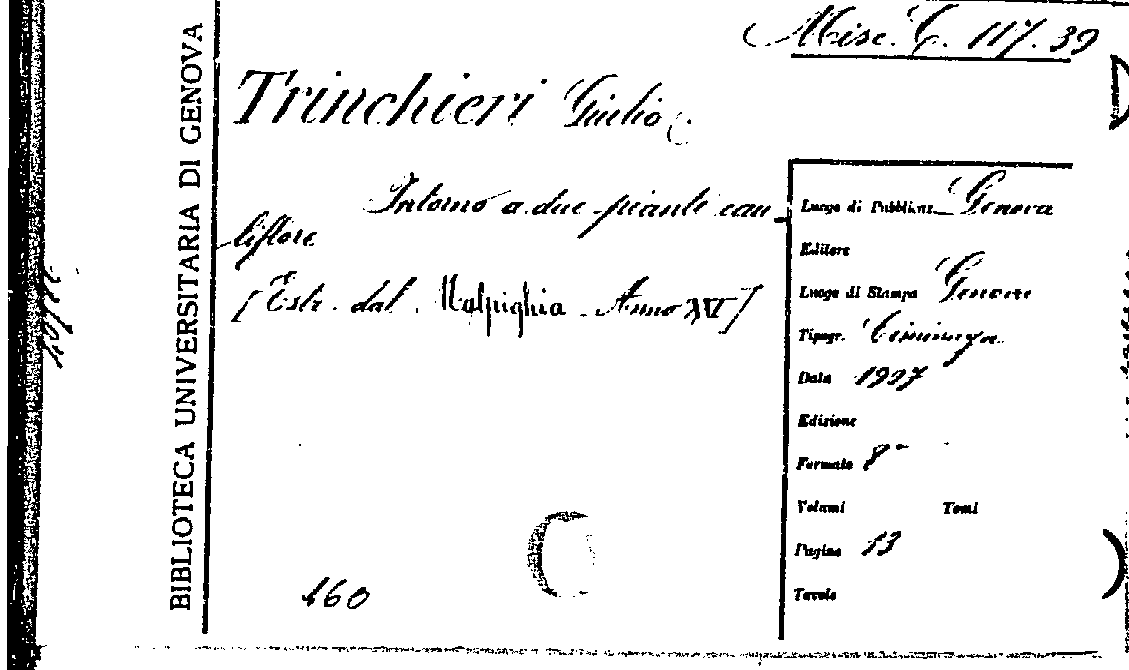 Misc. C. 117. 39
BIBLIOTECA UNIVERSITARIA DI GENOVA
Trinchieri Giulio
Intorno a due piante cau_
liflore
[Estr. dal Malpighia. Anno XVI]
160
Luogo di Pubblicaz. Genova
Editore
Luogo di Stampa Genova
Tipogr. Ciminago
Data 1907
Edizione
Formato 8°
Volumi Tomi
Pagine 13
Tavole